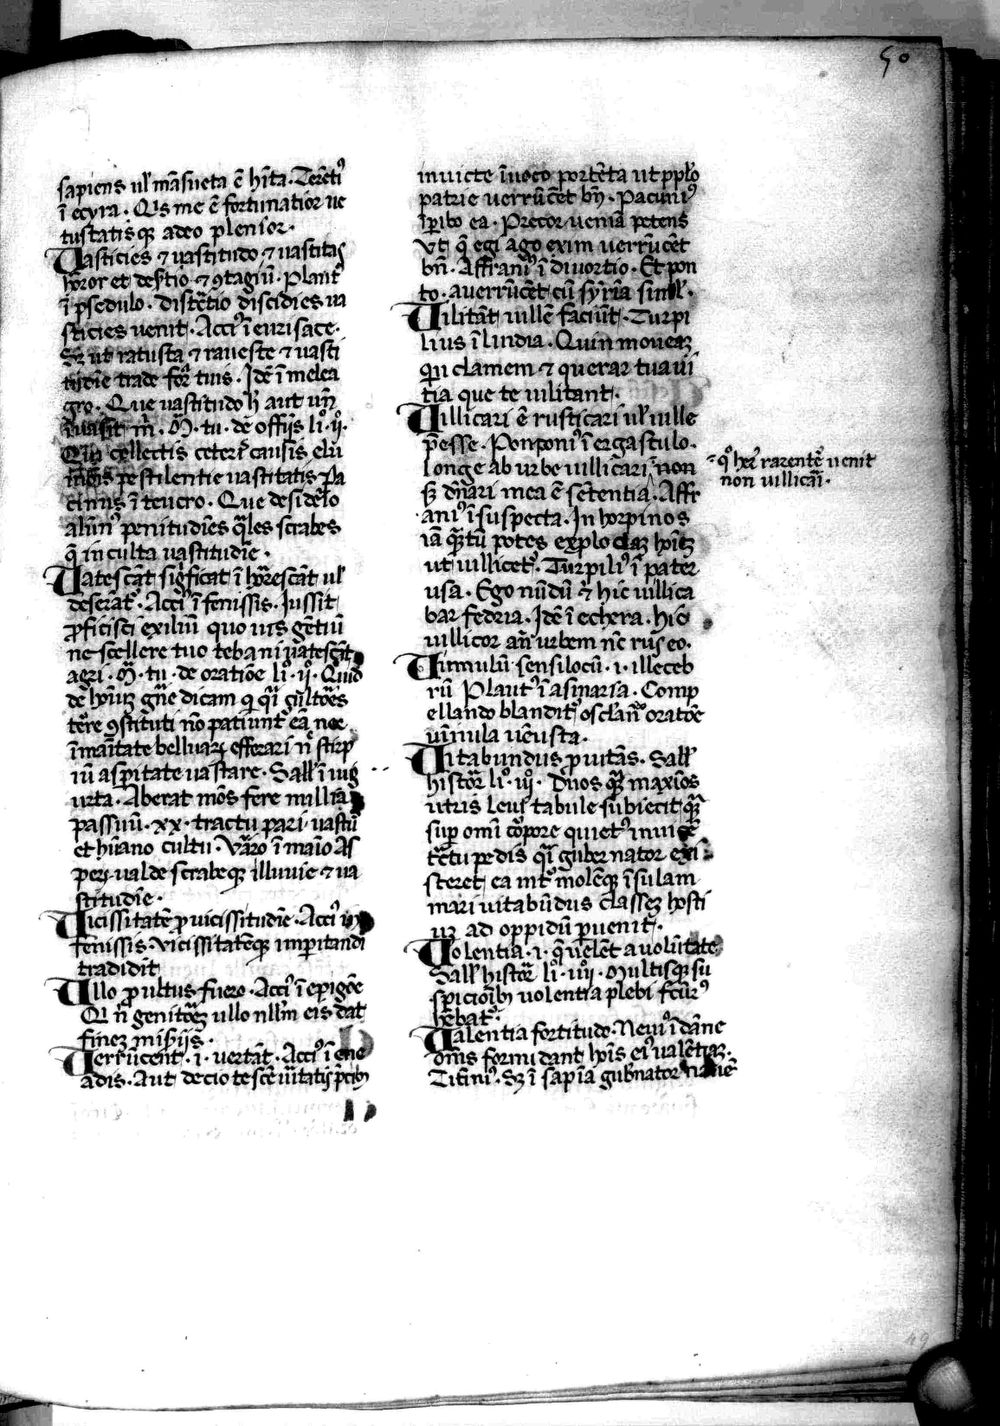 50
sapiens ul̄ māsueta ē hīta. Terētiꝰ
ī ecyra. Qis me ē fortunatior ue
tustatisqꝫ adeo plenior.
Uasticies ⁊ uastitudo ⁊ uastitas
horror et destio ⁊ ꝯtagiū. Plautꝰ
ī pseudulo. distētio discidies ua
sticies uenit. Acciꝰ ī eurisace.
Sꝫ ut ratusta ⁊ raueste ⁊ uasti
tudīe trade for tuis. Idē ī melea
gro. Que uastitudo h̄ aut un̄
īuasit m̄. M. tu. de offijs li. ij.
collectis ceteris causis elu
pestilentie uastitatis Pa
ī teucro. Que desidēo
alūnꝰ penitudīes q̄les scrabes
q̄ inculta uastitudīe.
Uatescāt sigficat ī horrescāt ul̄
deserāt. Acciꝰ ī fenissis. Iussit
ꝓficisci exiliū quo uis gētiū
ne scellere tuo tebani uatescāt
agri. M. tu. de oratiōe li. ij. Quid
de hoīuꝫ gn̄e dicam q
tr̄re ꝯstituti nō patiunt eā nec
īmāitate belluarꝫ efferari n̄ stirp
iū aspitate uastare. Sall ī iug
urta. Aberat mōs fere millia
passuū. xx. tractu pari. uastꝰ
et huāno cultu. Varo ī maīo As
perꝫ ualde scrabeqꝫ illuuie ⁊ ua
stitudīe.
Uicissitatē ꝓ uicissitudīe. Acciꝰ in
fenissis. vicissitatēqꝫ imperitandi
tradidit
Ullo ꝓ ultus fuero. Acciꝰ ī epigōe
Q n̄ genitorꝫ ullo nll̄m eis dat
finez misijs.
Uerrūcent. i. vertāt. Acciꝰ ī ene
adis. Aut decio te scē
inuicte īuoco portēta ut pplo
patrie uerrūcēt bn̄. Pacuuiꝰ
ī pibo ea. Precor ueniā petens
Vt q̄ egi ago exim uerrūcēt
bn̄. Affraniꝰ ī diuortio. Et pon
to. auerrūcēt cū syria siml̄.
Uilitāt uillē faciūt. Turpi
lius ī lindia. Quin moueaꝫ
qn clamem ⁊ querar tua ui
tia que te uilitant.
Uillicari ē rusticari ul̄ uille
p̄esse. Ponponiꝰ ī ergastulo.
longe ab urbe uillicari non
sꝫ dn̄ari mea ē sētentia. Affr
aniꝰ ī suspecta. In horpinos
iā q̄tū potes explodaꝫ hoīꝫ
ut uillicetꝰ. Turpiliꝰ ī pater
usa. Ego nūdū ⁊ hic uillica
bar fedria. Idē ī echera. hic
uillicor an̄ urbem nc̄ rus eo.
qꝰ her rarentē uenit
non uillicāi.
Uinnulū sensilocū. i. illeceb
rū Plautꝰ ī asinaria. Comp
ellando blanditꝰ osclādo oratōe
uīnula uēusta.
Uitabundus ꝓ uitās. Sall
histor li. iij. Duos q̄ꝫ maxios
utris leuiꝰ tabule subiecit
sup omī corpore quietꝰ inuice
tētu pedis q̄i gubernator exi
steret ea intꝰ molēqꝫ īsulam
mari uitabūdus classeꝫ hosti
uꝫ ad oppidū puenit.
Uolentia. i. q̄ uelēt a uolūtate
Sall histor li. iiij. Multisqꝫ su
spicioībꝰ uolentia plebi fcūrꝰ
hēbat.
Ualentia fortitudo. Neuiꝰ ī dāne
oms formidant hoīs eiꝰ ualētiaꝫ.
Titiniꝰ. Sꝫ ī sapīa gubnator nauē
49